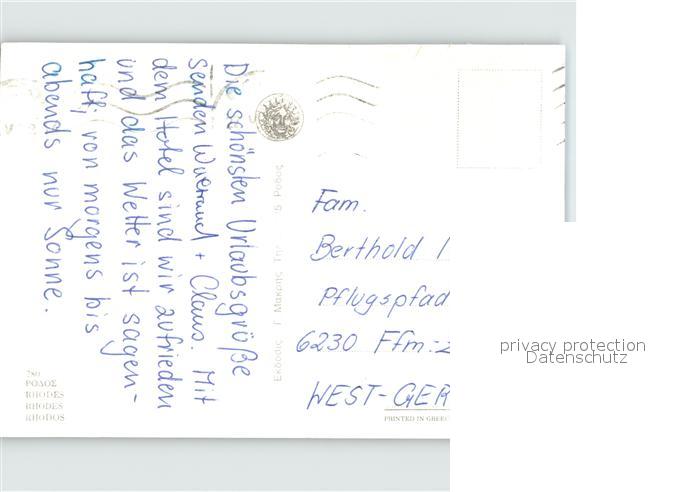 Die schönsten Urlaubsgröße
senden Waltraud + Claus. Mit
dem Hotel sind wir zufrieden
und das Wetter ist sagen-
haft, von morgens bis
abends nur Sonne.
Fam.
Berthold
Pflugspfad
6230 Ffm.-
WEST-GER
780
ΡΟΔΟΣ
RHODES
RHODES
RHODOS
Εκδοσις Γ. Μακρης Τηλ 5 Ροδος
PRINTED IN GREEC
privacy protection
Datenschutz